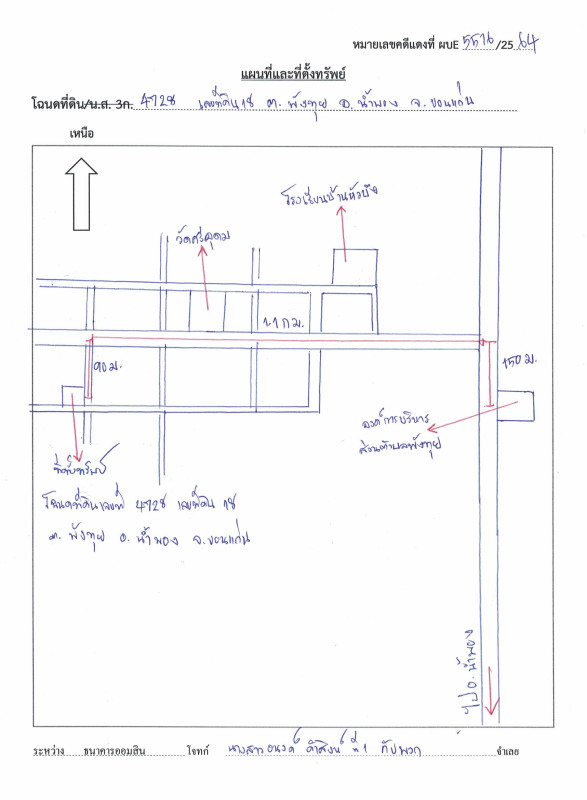 หมายเลขคดีแดงที่ ผบE 5516/25 64
แผนที่และที่ตั้งทรัพย์
โฉนดที่ดิน/น.ส. 3ก. 4728 เลขที่ดิน 18 ต. พังทุย อ. น้ำพอง จ. ขอนแก่น
เหนือ
โรงเรียนบ้านหัวบึง
วัดศรีอุดม
1.1 กม.
90 ม.
150 ม.
องค์การบริหาร
ส่วนตำบลพังทุย
ที่ตั้งทรัพย์
โฉนดที่ดินเลขที่ 4728 เลขที่ดิน 18
ต. พังทุย อ. น้ำพอง จ.ขอนแก่น
ไป อ. น้ำพอง
ระหว่าง ธนาคารออมสิน โจทก์ นางสาว ที่ 1 กับพวก จำเลย